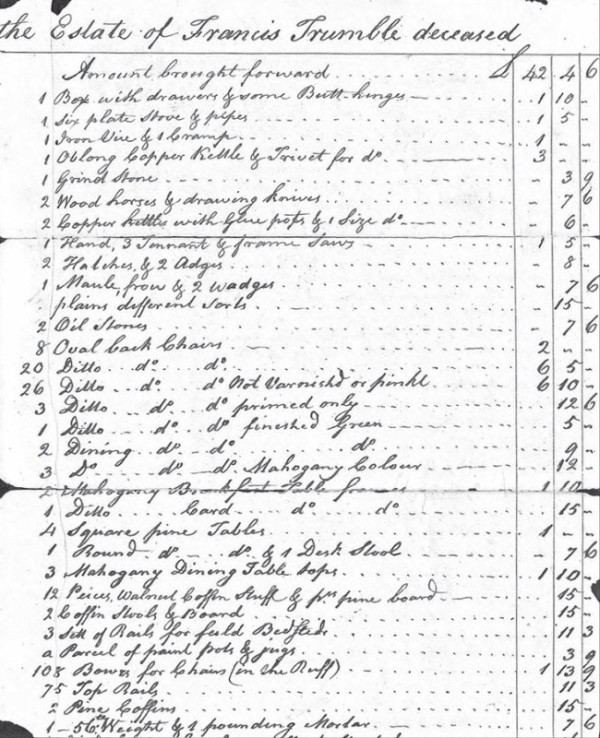 the Estate of Francis Trumble deceased
Amount brought forward £ 42 4 6
1 Box with drawers & some Butt-hinges 1 10 -
1 Six plate Stove & pipes 1 5 -
1 Iron Vise & 1 Cramp 1 - -
1 Oblong Copper Kettle & Trivet for do. 3 - -
1 Grind Stone - 3 9
2 Wood horses & drawing knives - 7 6
2 Copper kettles with Glue pots & 1 Size do - 6 -
1 Hand, 3 Tennant & frame Saws 1 5 -
2 Hatches, & 2 Adges - 8 -
1 Maule, frow & 2 Wadges - 7 6
plains different Sorts - 15 -
2 Oil Stones - 7 6
8 Oval back Chairs 2 - -
20 Ditto do do 6 5 -
26 Ditto do do Not Varnishd or 6 10 -
3 Ditto do do primed only - 12 6
1 Ditto do do fineshed Green - 5 -
2 Dining do do do - 9 -
3 Do do do Mahogany Colour - 12 -
2 Mahogany Breakfast Table frames 1 10
1 Ditto Card do do - 15 -
4 Square pine Tables 1 - -
1 Round do do & 1 Desk Stool - 7 6
3 Mahogany Dining Table tops 1 10 -
12 Peices, Walnut Coffin Stuff & pine board - 15 -
2 Coffin Stools & Board - 15 -
3 Sett of Rails for feild Bedsteds - 11 3
a Parcel of paint pots & jugs - 3 9
108 Bowes for Chairs (in the Ruff) 1 13 9
75 Top Rails - 11 3
2 Pine Coffins - 15 -
1 - 56 Weight & 1 pounding Mortar - 7 6